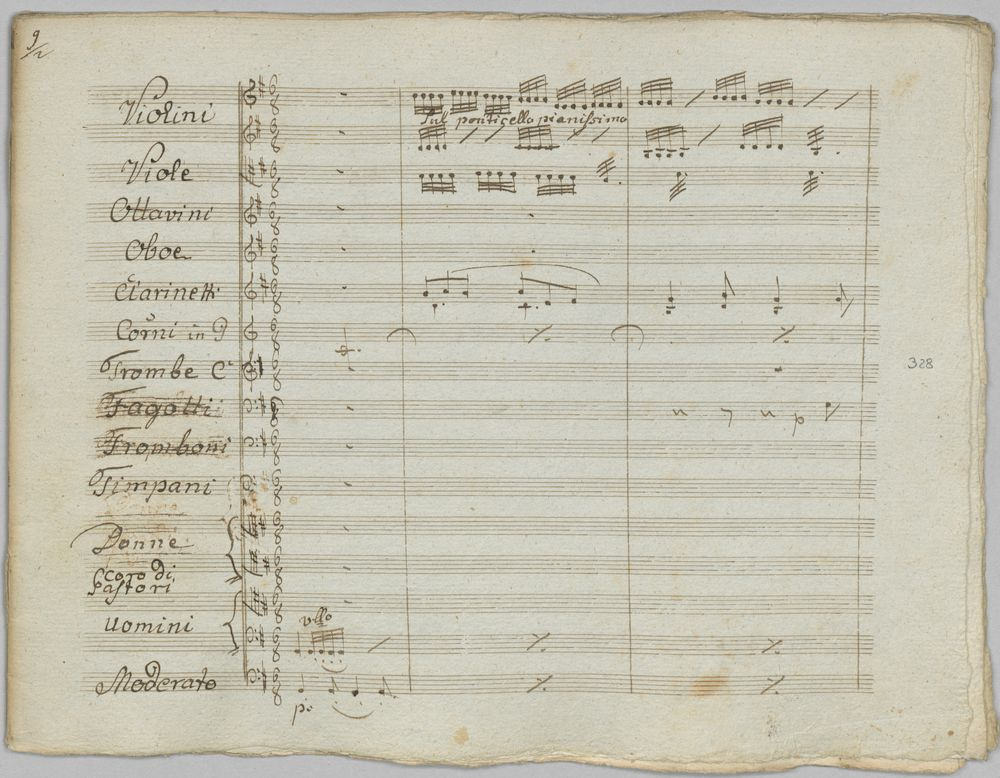 9/12
Violini
Sul ponticello pianissimo
Viole
Ottavini
Oboe
Clarinetti
Corni in D
Trombe C
328
Fagotti
Tromboni
Timpani
Donne
Coro di
Pastori
Uomini
vllo
Moderato
po